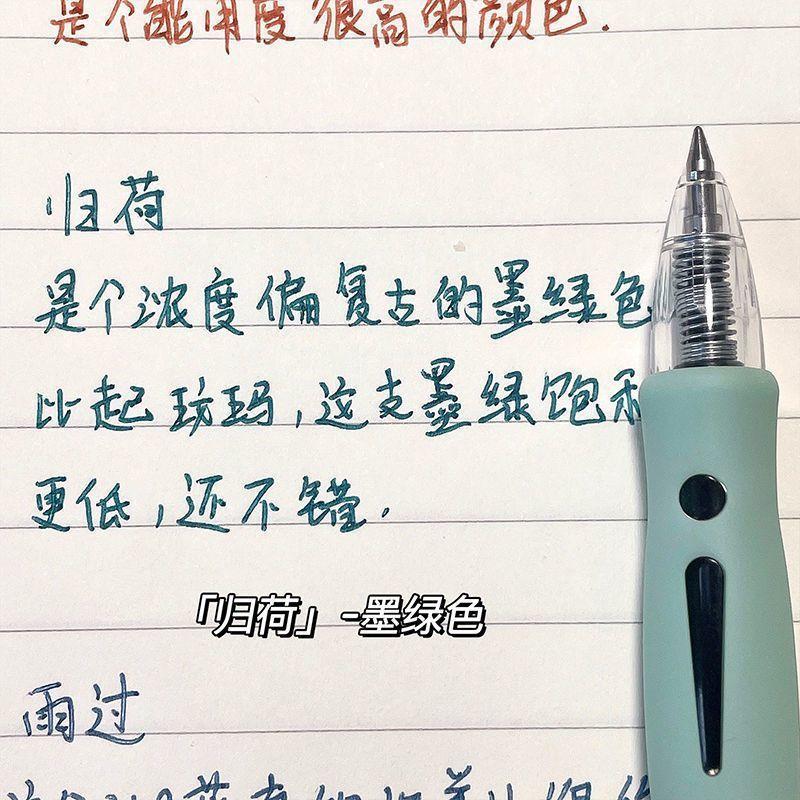 是个能用度很高的颜色.
归荷
是个浓度偏复古的墨绿色
比起玢玛,这支墨绿饱和
更低,还不错.
「归荷」-墨绿色
雨过